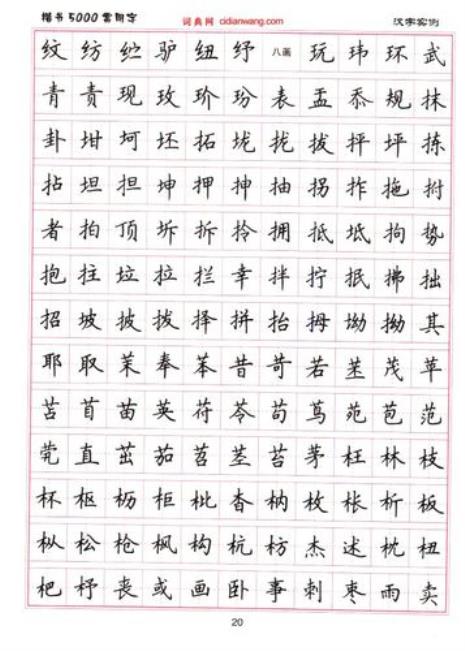 楷书5000常用字 词典网 cidianwang.com 汉字实例
纹 纺 纻 驴 纽 纾 八画 玩 玮 环 武
青 责 现 玫 玠 玢 表 盂 忝 规 抹
卦 坩 坷 坯 拓 垅 拢 拔 抨 坪 拣
拈 坦 担 坤 押 抻 抽 拐 拃 拖 拊
者 拍 顶 坼 拆 拎 拥 抵 坻 拘 势
抱 拄 垃 拉 拦 幸 拌 拧 抿 拂 拙
招 坡 披 拨 择 拚 抬 拇 坳 拗 其
耶 取 茉 奉 苯 昔 苛 若 茂 苹
苫 苜 苗 英 苻 苓 苟 茑 苑 苞 范
茕 直 茁 茄 茎 苔 茅 枉 林 枝
杯 枢 枥 柜 杳 枘 枚 枨 析 板
枞 松 枪 枫 构 杭 枋 杰 述 枕 杻
杷 杼 丧 或 画 卧 事 刺 枣 雨 卖
20